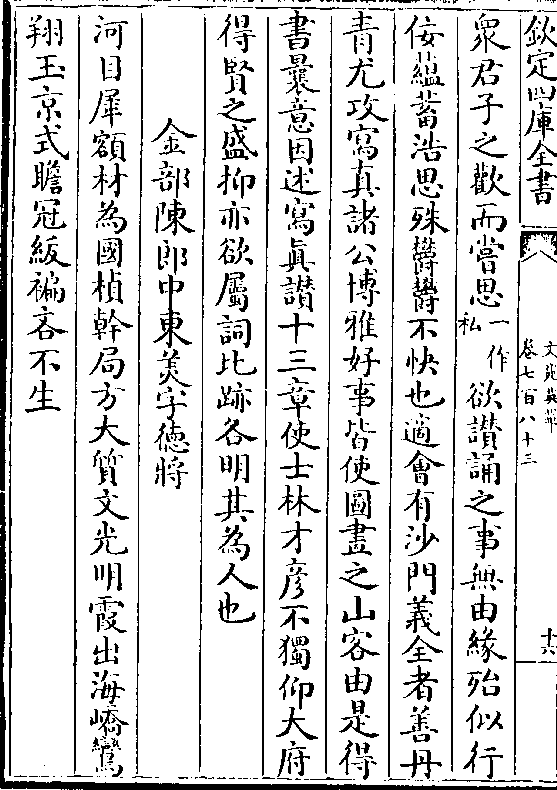 欽定四庫全書
文苑英華
卷七百八十三
十六
衆君子之歡而嘗思一作私欲讃誦之事無由緣殆似行
侫蘊蓄浩思殊欝欝不快也適會有沙門義全者善丹
青尤攻寫真諸公博雅好事皆使圖畫之山客由是得
書曩意因述寫真讃十三章使士林才彦不獨仰大府
得賢之盛抑亦欲屬詞比跡各明其為人也
金部陳郎中東美字德將
河目犀額材為國楨幹局方大質文光明霞出海嶠鸞
翔玉京式瞻冠綬褊吝不生